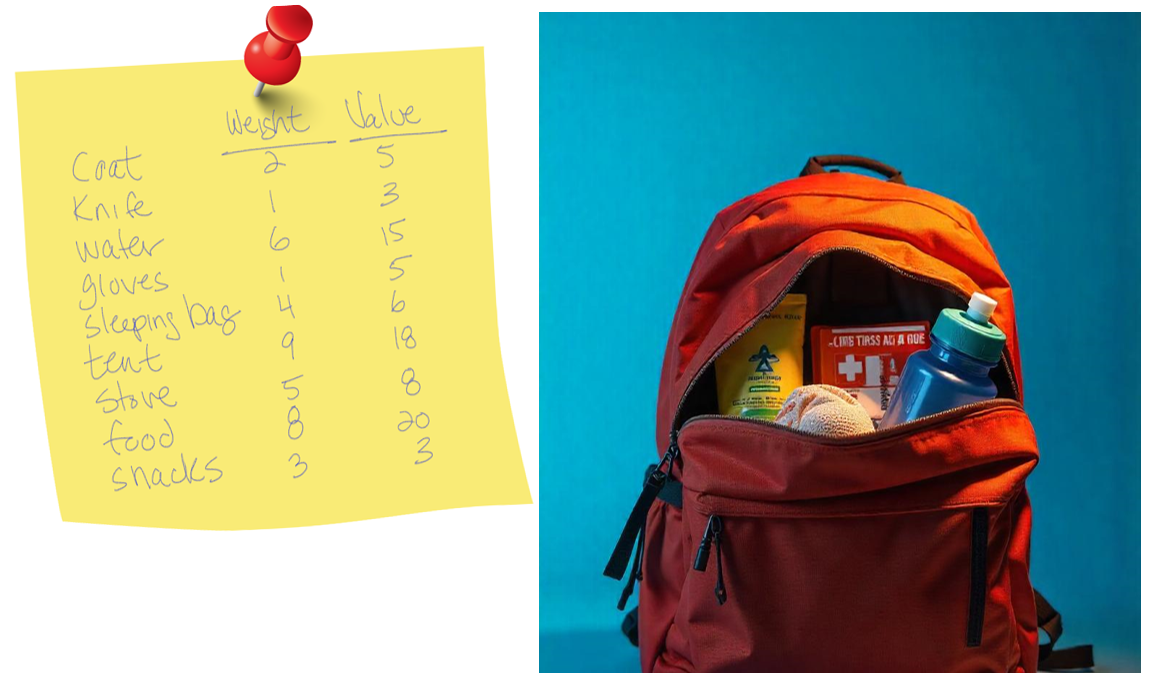 Weight Value
Coat 2 5
Knife 1 3
water 6 15
gloves 1 5
sleeping bag 4 6
tent 9 18
stove 5 8
food 8 20
snacks 3 3